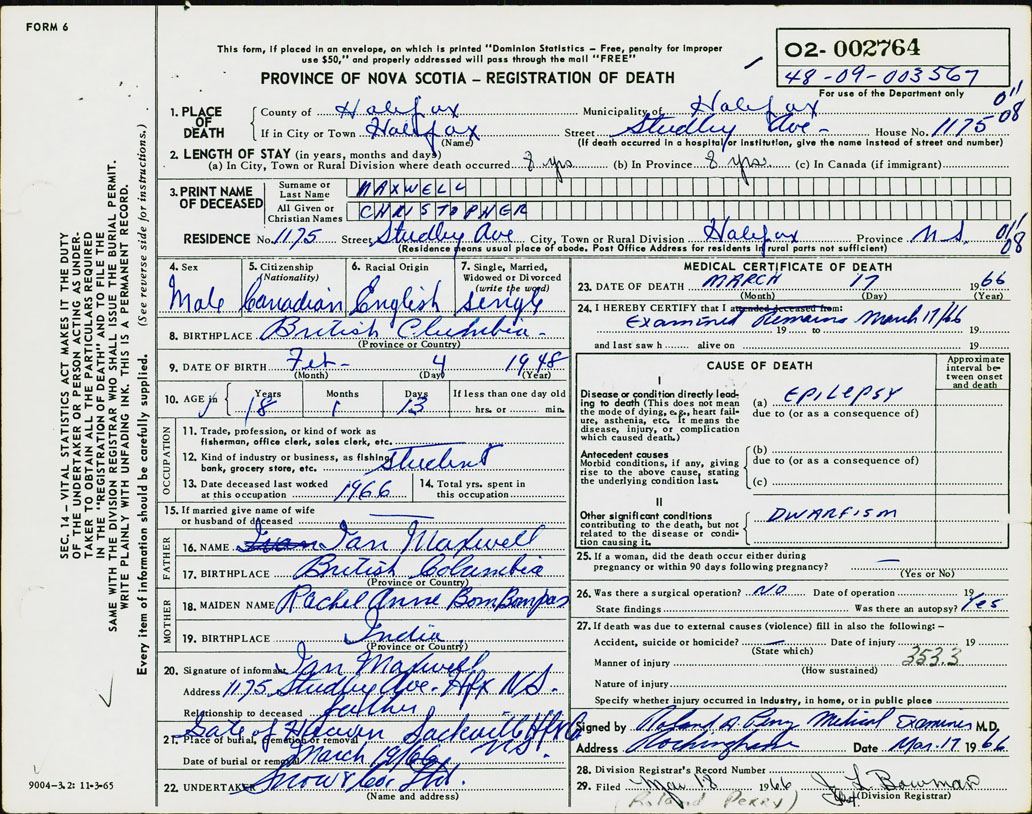 FORM 6
This form, if placed in an envelope, on which is printed "Dominion Statistics – Free, penalty for improper
use $50," and properly addressed will pass through the mail "FREE"
02-002764
48-09-003567
For use of the Department only
PROVINCE OF NOVA SCOTIA – REGISTRATION OF DEATH
011
08
1. PLACE OF DEATH
County of Halifax Municipality of Halifax
If in City or Town Halifax Street Studley Ave- House No. 1175
(Name) (If death occurred in a hospital or institution, give the name instead of street and number)
2. LENGTH OF STAY (in years, months and days)
(a) In City, Town or Rural Division where death occurred 8 yrs (b) In Province 8 yrs. (c) In Canada (if immigrant)
3. PRINT NAME OF DECEASED
Surname or Last Name MAXWELL
All Given or Christian Names CHRISTOPHER
RESIDENCE No. 1175 Street Studley Ave City, Town or Rural Division Halifax Province N.S.
011
08
(Residence means usual place of abode. Post Office Address for residents in rural parts not sufficient)
4. Sex
Male
5. Citizenship (Nationality)
Canadian
6. Racial Origin
English
7. Single, Married, Widowed or Divorced (write the word)
single
8. BIRTHPLACE British Clumbia-
(Province or Country)
9. DATE OF BIRTH Feb- 4 1948
(Month) (Day) (Year)
10. AGE in Years Months Days If less than one day old
18 1 13 hrs. or min.
OCCUPATION
11. Trade, profession, or kind of work as fisherman, office clerk, sales clerk, etc.
12. Kind of industry or business, as fishing, bank, grocery store, etc. student
13. Date deceased last worked at this occupation 1966
14. Total yrs. spent in this occupation
15. If married give name of wife or husband of deceased
FATHER
16. NAME Ivan Ian Maxwell
17. BIRTHPLACE British Columbia
(Province or Country)
MOTHER
18. MAIDEN NAME Rachel Anne Bom Bompas
19. BIRTHPLACE India
(Province or Country)
20. Signature of informant Ian Maxwell
Address 1175 Studley Ave. Hfx N.S.
Relationship to deceased father
21. Place of burial, cremation or removal Gate of Heaven Sackville Hfx Co N.S.
Date of burial or removal March 19/66
22. UNDERTAKER Snow & Co. Ltd.
(Name and address)
MEDICAL CERTIFICATE OF DEATH
23. DATE OF DEATH MARCH 17 1966
(Month) (Day) (Year)
24. I HEREBY CERTIFY that I attended deceased from:
Examined Remains March 17/66
19 to 19
and last saw h alive on 19
CAUSE OF DEATH
Approximate interval between onset and death
I
Disease or condition directly leading to death (This does not mean the mode of dying, e.g., heart failure, asthenia, etc. It means the disease, injury, or complication which caused death.)
(a) EPILEPSY
due to (or as a consequence of)
Antecedent causes
Morbid conditions, if any, giving rise to the above cause, stating the underlying condition last.
(b)
due to (or as a consequence of)
(c)
II
Other significant conditions contributing to the death, but not related to the disease or condition causing it.
DWARFISM
25. If a woman, did the death occur either during pregnancy or within 90 days following pregnancy? –
(Yes or No)
26. Was there a surgical operation? NO Date of operation 19
State findings Was there an autopsy? Yes
27. If death was due to external causes (violence) fill in also the following: –
Accident, suicide or homicide? – Date of injury 19
(State which)
353.3
Manner of injury
(How sustained)
Nature of injury
Specify whether injury occurred in industry, in home, or in public place
Signed by Roland A. Perry Medical Examiner M.D.
Address Rockingham Date Mar. 17 1966
28. Division Registrar's Record Number
29. Filed Mar 18 1966 L. Bowman
(Division Registrar)
(Roland Perry)
SEC. 14 – VITAL STATISTICS ACT MAKES IT THE DUTY
OF THE UNDERTAKER OR PERSON ACTING AS UNDER-
TAKER TO OBTAIN ALL THE PARTICULARS REQUIRED
IN THE "REGISTRATION OF DEATH" AND TO FILE THE
SAME WITH THE DIVISION REGISTRAR WHO SHALL ISSUE THE BURIAL PERMIT.
WRITE PLAINLY WITH UNFADING INK. THIS IS A PERMANENT RECORD.
Every item of information should be carefully supplied. (See reverse side for instructions.)
9004–3.2: 11-3-65